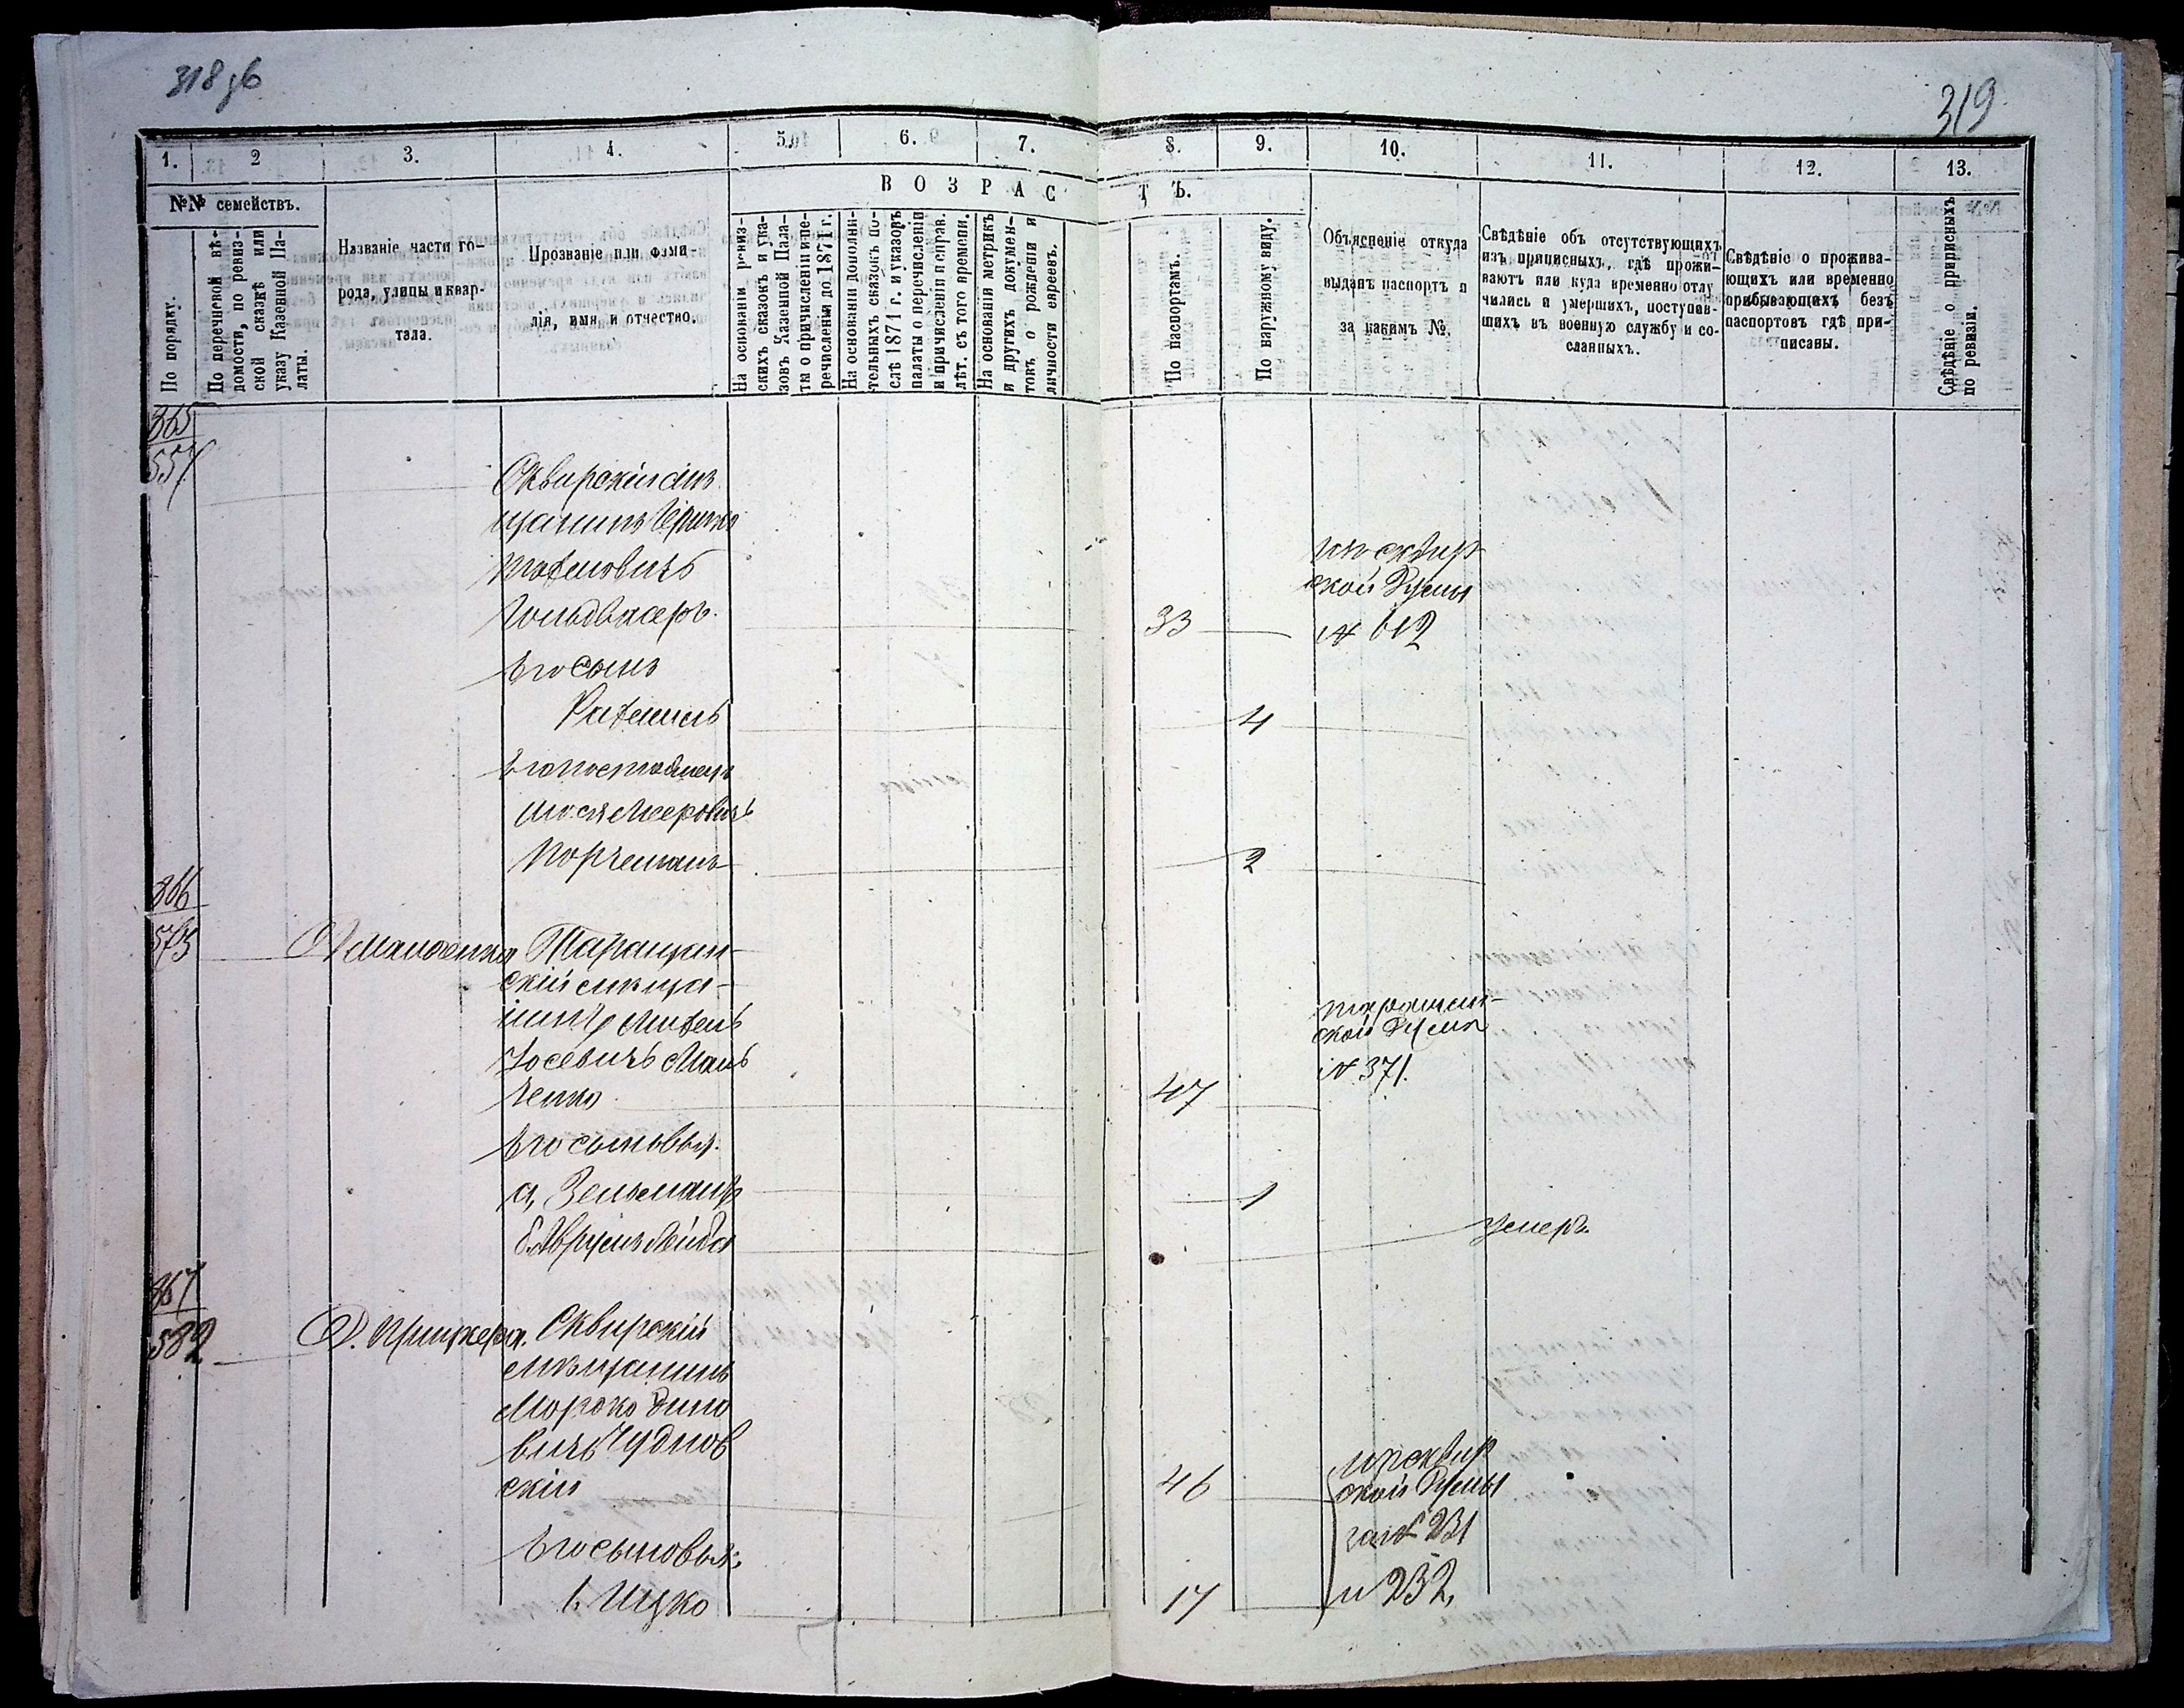 318 зв
319
1.
2
3.
4.
5.
6.
7.
8.
9.
10.
11.
12.
13.
№№ семействъ.
В О З Р А С Т Ъ.
По порядку.
По перечневой вѣ-
домости, по ревиз-
ской сказкѣ или
указу Казенной Па-
латы.
Названіе части го-
рода, улицы и квар-
тала.
Прозваніе или фами-
лія, имя и отчество.
На основаніи ревиз-
скихъ сказокъ и ука-
зовъ Казенной Пала-
ты о причисленіи и пе-
речисленіи до 1871 г.
На основаніи дополни-
тельныхъ сказокъ по-
слѣ 1871 г. и указовъ
палаты о перечисленіи
и причисленіи справ.
лѣт. съ того времени.
На основаніи метрикъ
и другихъ докумен-
товъ о рожденіи и
личности евреевъ.
По паспортамъ.
По наружному виду.
Объясненіе откуда
выданъ паспортъ и
за какимъ №.
Свѣдѣніе объ отсутствующихъ
изъ приписныхъ, гдѣ прожи-
ваютъ или куда временно отлу
чились и умершихъ, поступив-
шихъ въ военную службу и со-
сланныхъ.
Свѣдѣніе о прожива-
ющихъ или временно
прибывающихъ безъ
паспортовъ гдѣ при-
писаны.
Свѣдѣніе о приписныхъ
по ревизіи.
365
557
Сквирскій мѣ
щанинъ
33
изъ сквир
ской Думы
№ 612
Его сынъ
4
2
366
573
Таращан-
скій мѣща-
нинъ
Іосевичъ Мань
ченко
47
таращан-
ской Думы
№ 371.
Его сыновья:
а, Зельманъ
1
б. Аврумъ Лейба
умеръ
367
582
Сквирскій
мѣщанинъ
вичъ Чуднов
скій
46
изъ сквир
ской Думы
за № 231
и 232,
Его сыновья:
1. Ицко
17